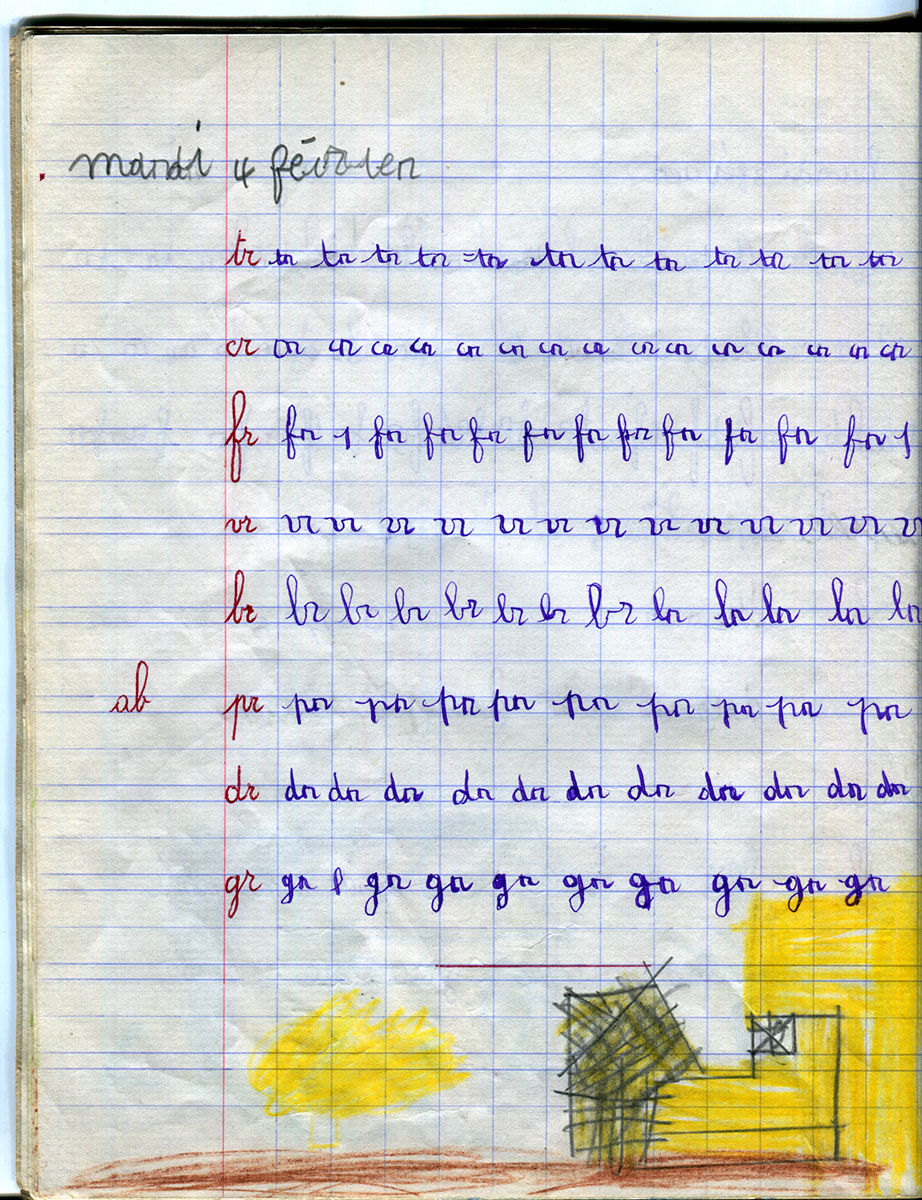 mardi 4 février
tr tr tr tr tr tr tr tr tr tr tr tr tr
cr cr cr cr cr cr cr cr cr cr cr cr cr cr cr cr
fr fr 1 fr fr fr fr fr fr fr fr fr fr 1
vr vr vr vr vr vr vr vr vr vr vr vr vr vr
br br br br br br br br br br br br br
ab pr pr pr pr pr pr pr pr pr pr
dr dr dr dr dr dr dr dr dr dr dr dr
gr gr gr gr gr gr gr gr gr gr